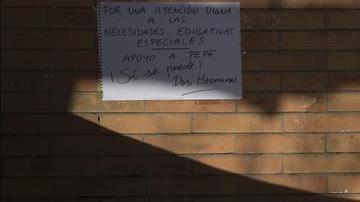 POR UNA ATENCIÓN DIGNA
A LAS
NECESIDADES EDUCATIVAS
ESPECIALES
APOYO A PEPE
¡Sí se puede!
Dos Hermanas